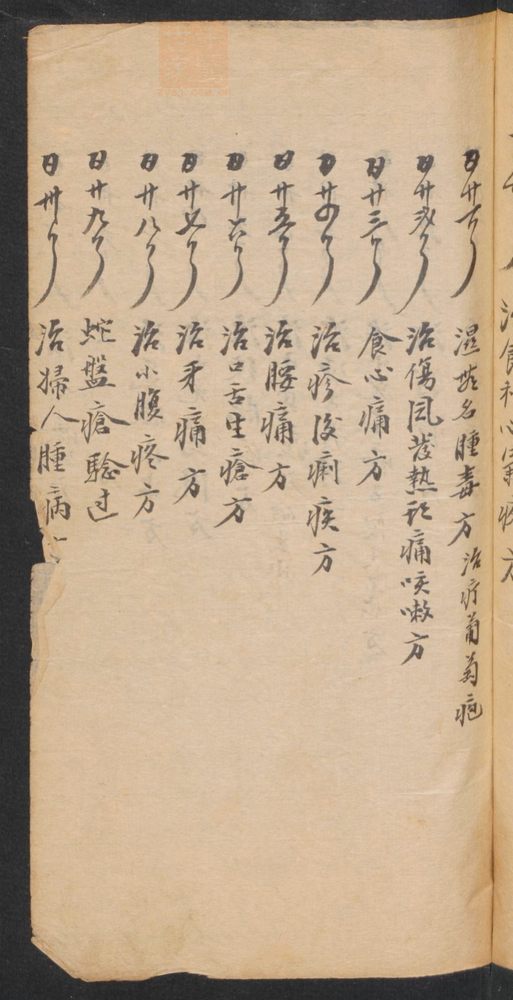 治食和心
日廿一 濕 名腫毒方 治疔葡萄疱
日廿弍 治傷風發熱頭痛咳嗽方
日廿三 食心痛方
日廿四 治疹後痢疾方
日廿五 治腰痛方
日廿六 治口舌生瘡方
日廿七 治牙痛方
日廿八 治小腹疼方
日廿九 蛇盤瘡騐过
日卅 治婦人腫病